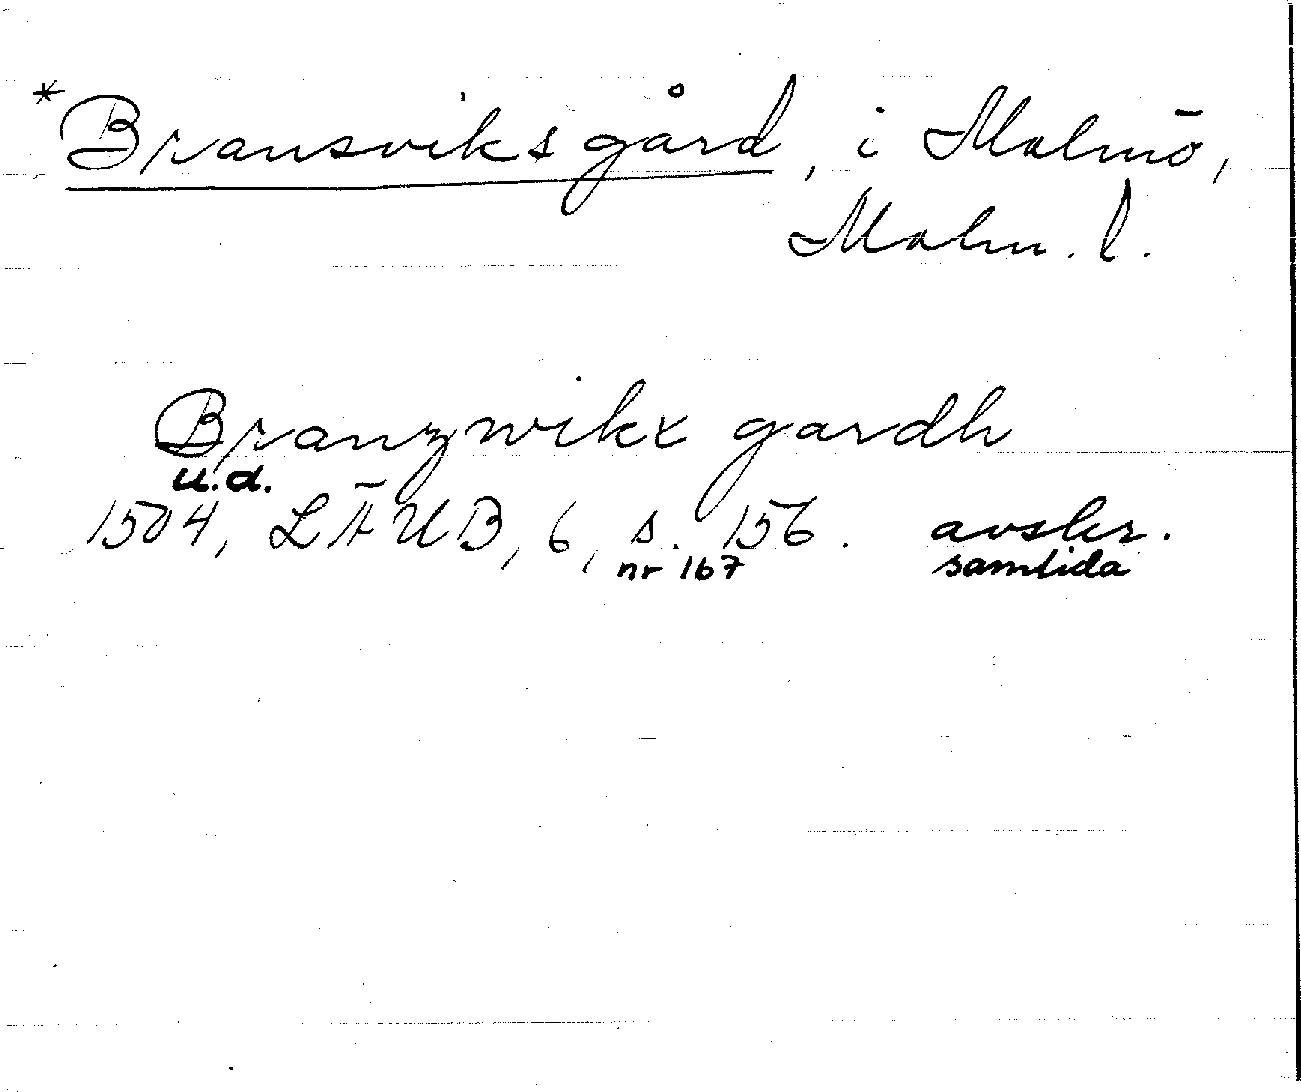 *Bransviksgård, i Malmö,
Malm. l.
Branzwikx gardh
u.d.
1504, LÄUB, 6, s. 156. avskr.
nr 167 samtida